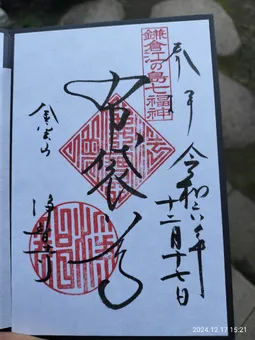 奉拝
鎌倉江の島七福神
令和六年
十二月十七日
布袋尊
金宝山
浄智寺
2024.12.17 15:21